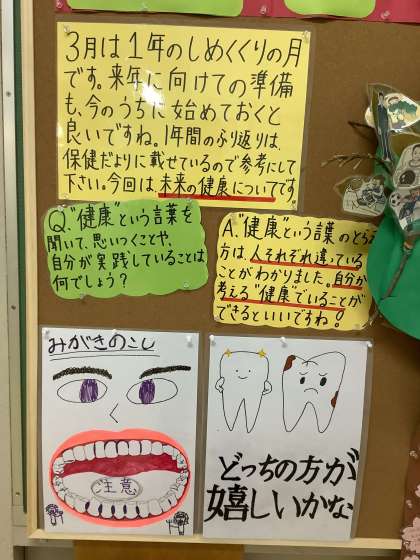 3月は1年のしめくくりの月
です。来年に向けての準備
も、今のうちに始めておくと
良いですね。1年間のふり返りは、
保健だよりに載せているので参考にして
下さい。今回は、未来の健康についてです
Q."健康"という言葉を
聞いて、思いつくことや、
自分が実践していることは
何でしょう？
A."健康"という言葉のとらえ
方は、人それぞれ違っている
ことがわかりました。自分が
考える"健康"でいることが
できるといいですね！
みがきのこし
注意
どっちの方が
嬉しいかな